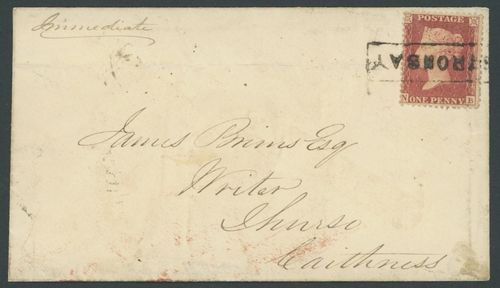 Immediate
POSTAGE
STRONSAY
ONE PENNY
N B
James Brims Esq
Writer
Thurso
Caithness